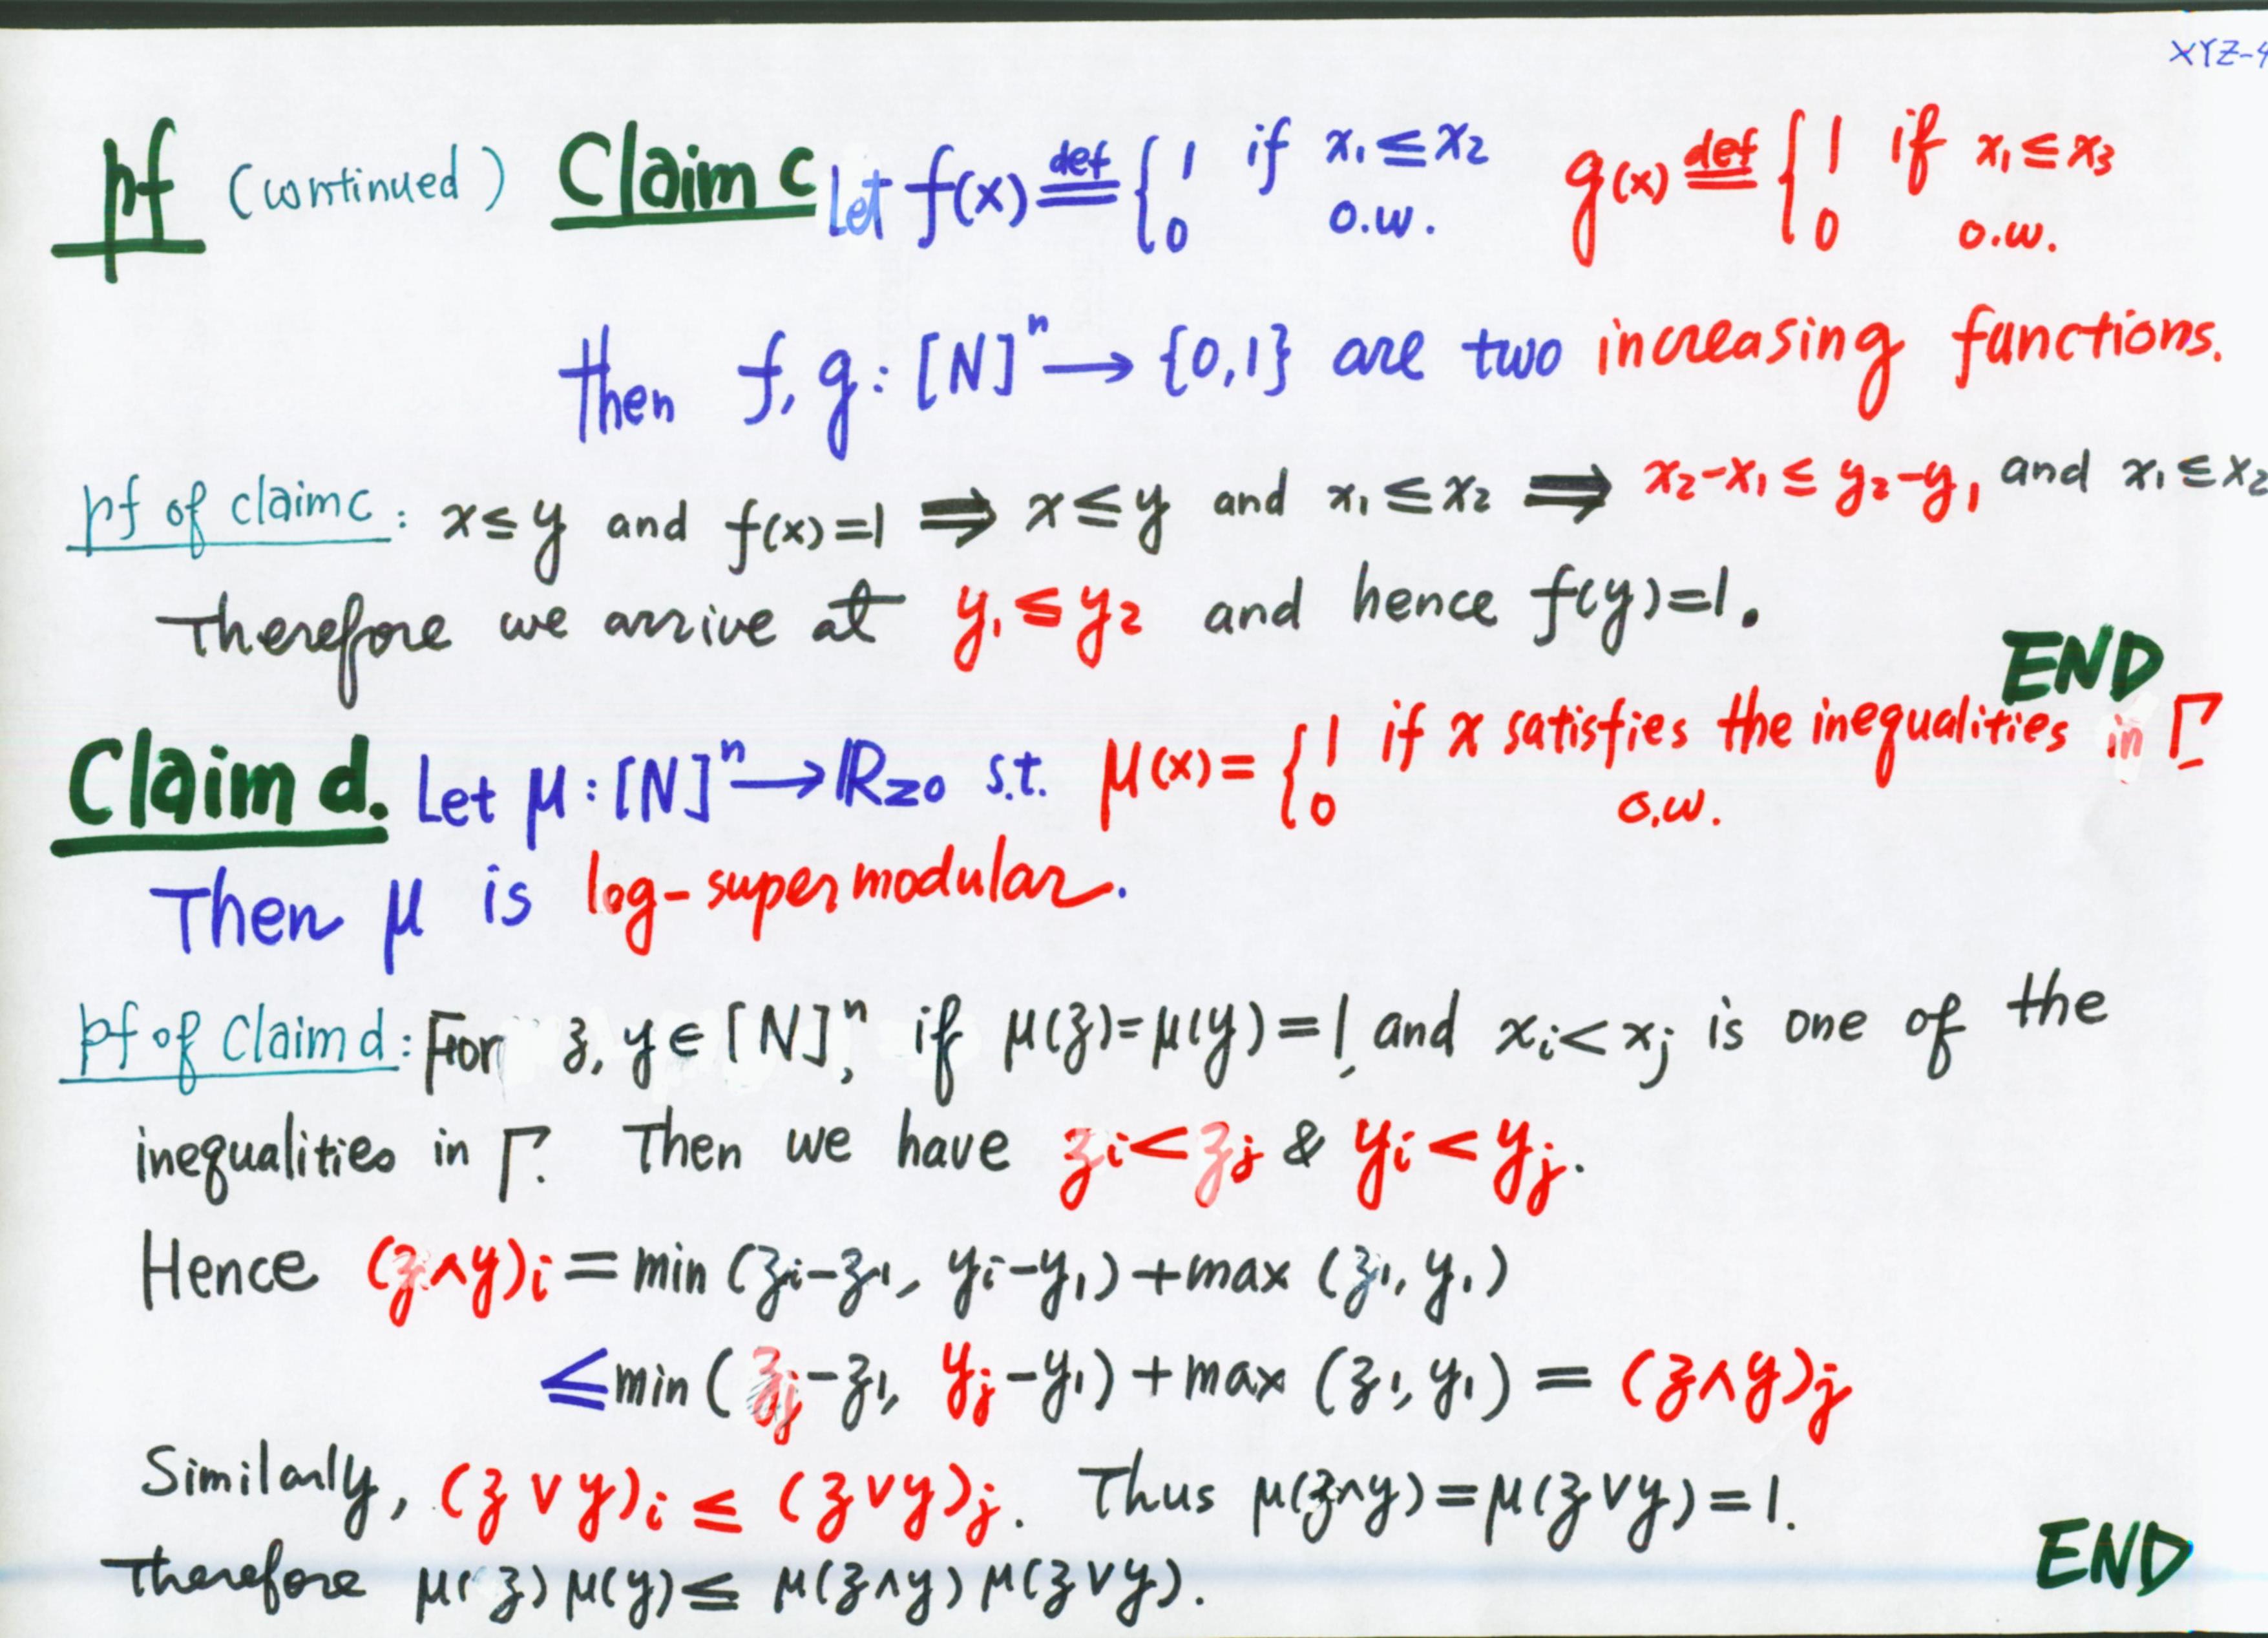 XYZ-4
pf (continued) Claim c Let f(x) def= { 1 if x₁ ≤ x₂ g(x) def= { 1 if x₁ ≤ x₃
0 o.w. 0 o.w.
then f, g : [N]ⁿ → {0,1} are two increasing functions.
pf of claim c : x ≤ y and f(x)=1 ⟹ x ≤ y and x₁ ≤ x₂ ⟹ x₂-x₁ ≤ y₂-y₁, and x₁ ≤ x₂
Therefore we arrive at y₁ ≤ y₂ and hence f(y)=1.
END
Claim d. Let μ : [N]ⁿ → ℝ≥0 s.t. μ(x) = { 1 if x satisfies the inequalities in Γ
0 o.w.
Then μ is log-supermodular.
pf of Claim d : For z, y ∈ [N]ⁿ, if μ(z)=μ(y)=1, and xᵢ < xⱼ is one of the
inequalities in Γ. Then we have zᵢ < zⱼ & yᵢ < yⱼ.
Hence (z∧y)ᵢ = min (zᵢ-z₁, yᵢ-y₁) + max (z₁, y₁)
≤ min (zⱼ-z₁, yⱼ-y₁) + max (z₁, y₁) = (z∧y)ⱼ
Similarly, (z∨y)ᵢ ≤ (z∨y)ⱼ. Thus μ(z∧y)=μ(z∨y)=1.
Therefore μ(z)μ(y) ≤ μ(z∧y)μ(z∨y).
END